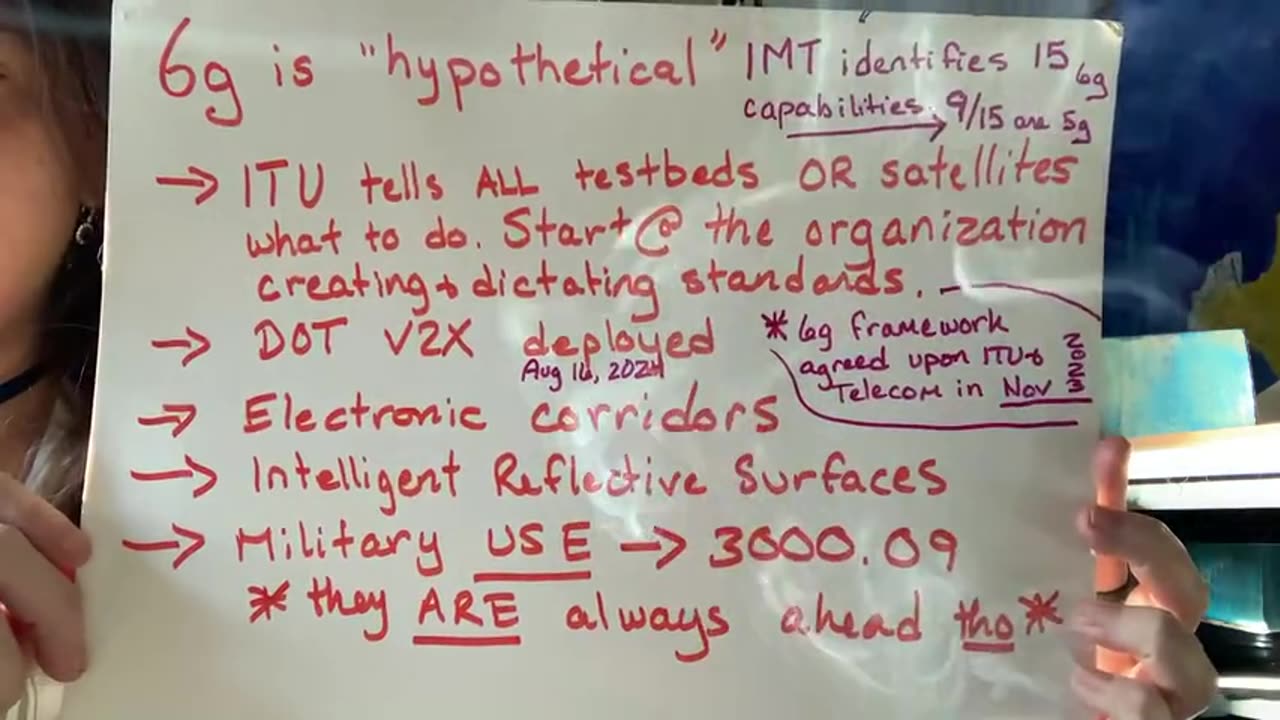 6g is "hypothetical"
IMT identifies 15 6g
capabilities. 9/15 are 5g
→ ITU tells ALL testbeds OR satellites
what to do. Start @ the organization
creating + dictating standards.
→ DOT V2X deployed
Aug 16, 2024
* 6g framework
agreed upon ITU +
Telecom in Nov 2023
→ Electronic corridors
→ Intelligent Reflective Surfaces
→ Military USE → 3000.09
* they ARE always ahead tho *